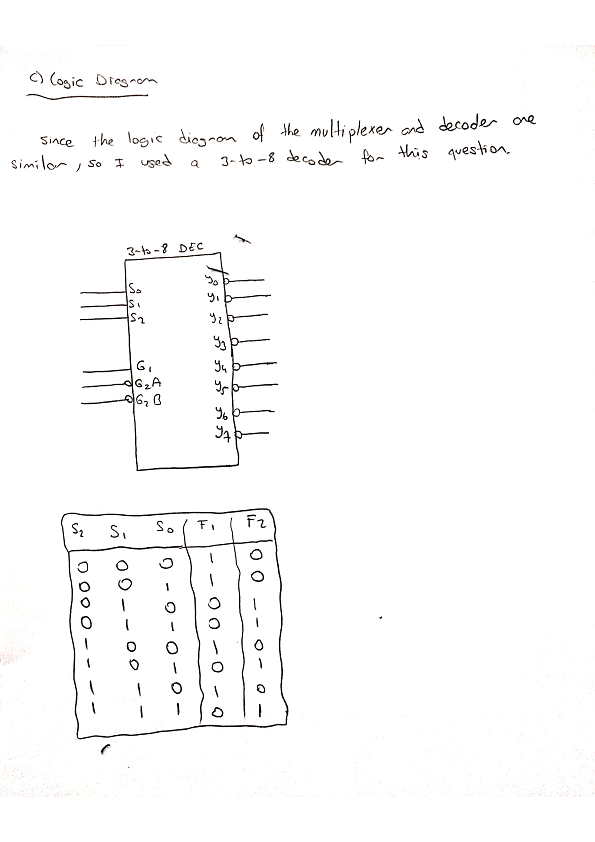 c) Logic Diagram
Since the logic diagram of the multiplexer and decoder are
similar, so I used a 3-to-8 decoder for this question.
3-to-8 DEC
S0 y0
S1 y1
S2 y2
y3
G1 y4
G2A y5
G2B y6
y7
S2 S1 S0 F1 F2
0 0 0 1 0
0 0 1 1 0
0 1 0 0 1
0 1 1 0 1
1 0 0 1 0
1 0 1 0 1
1 1 0 1 0
1 1 1 0 1